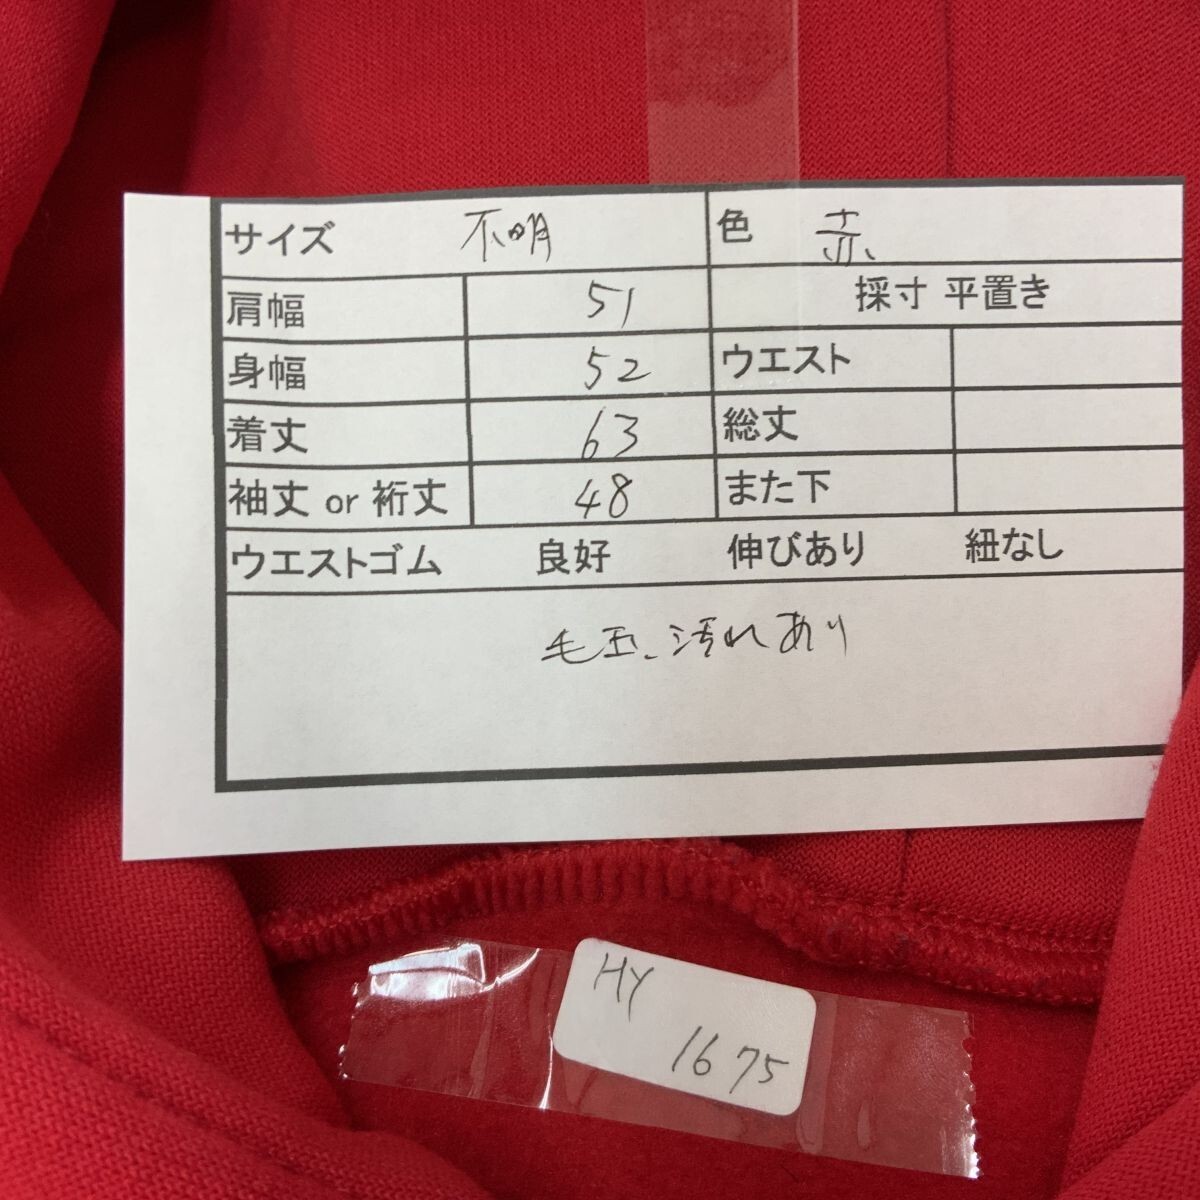 サイズ 不明 色 赤
肩幅 51 採寸 平置き
身幅 52 ウエスト
着丈 63 総丈
袖丈 or 裄丈 48 また下
ウエストゴム 良好 伸びあり 紐なし
毛玉、汚れあり
HY
1675